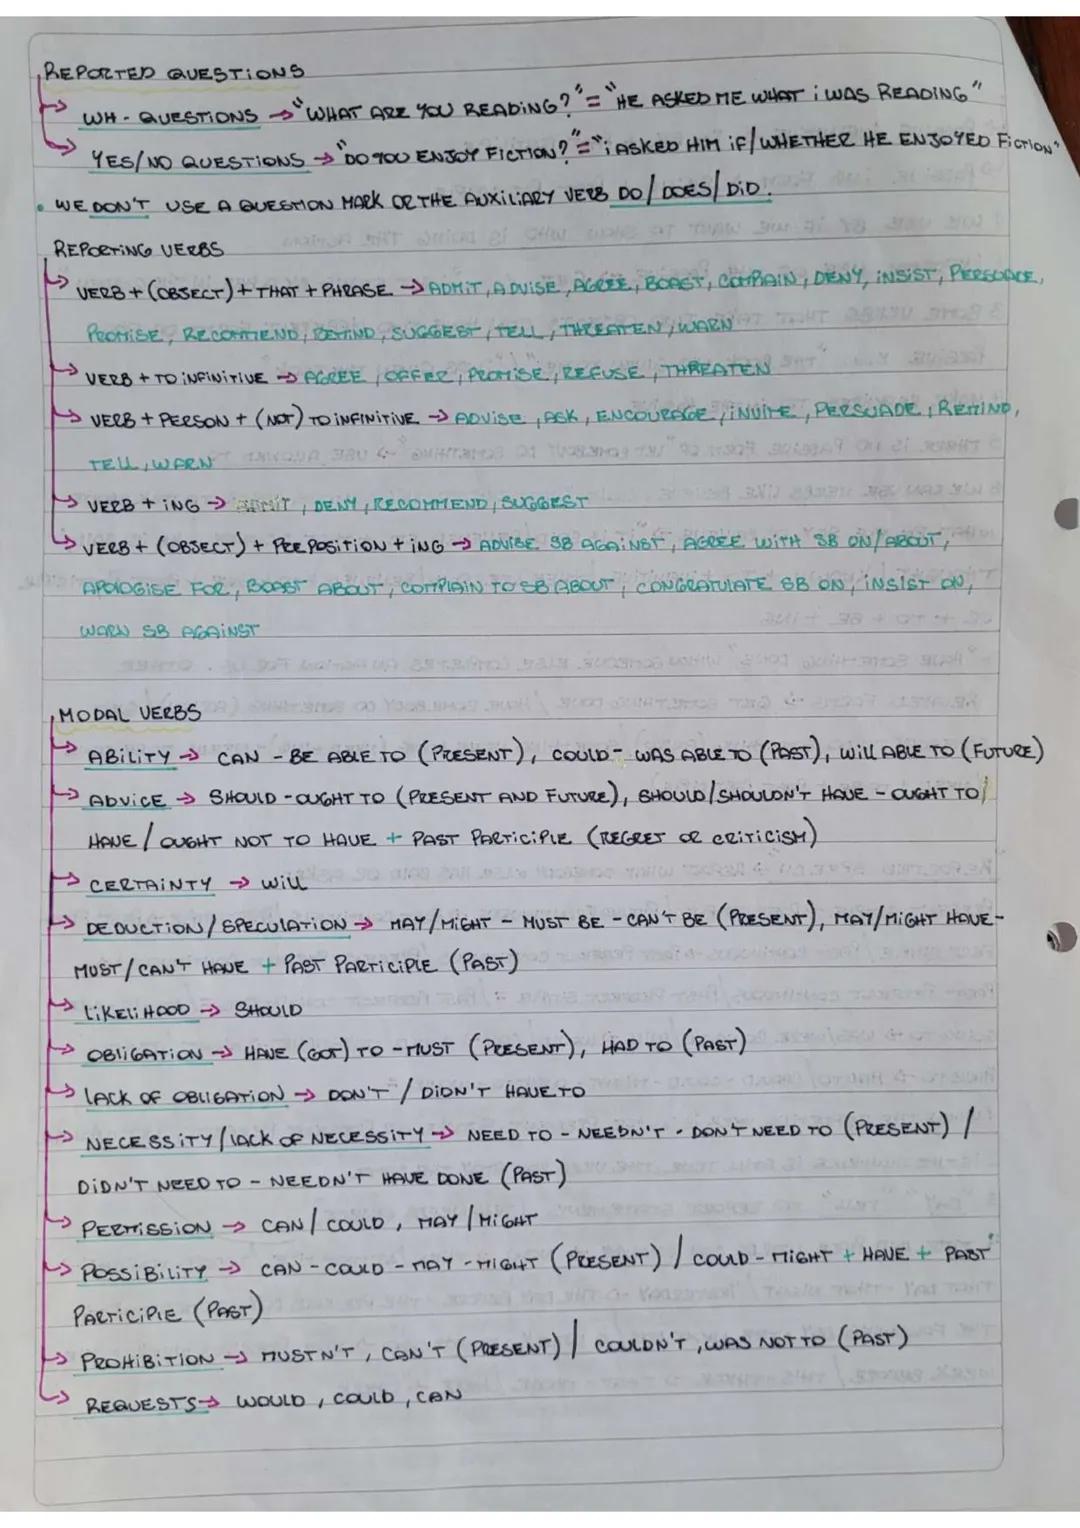 REPORTED QUESTIONS
WH - QUESTIONS → "WHAT ARE YOU READING?" = "HE ASKED ME WHAT I WAS READING"
YES/NO QUESTIONS → "DO YOU ENJOY FICTION?" = "I ASKED HIM IF/WHETHER HE ENJOYED FICTION"
• WE DON'T USE A QUESTION MARK OR THE AUXILIARY VERB DO/DOES/DID.
REPORTING VERBS
VERB + (OBJECT) + THAT + PHRASE → ADMIT, ADVISE, AGREE, BOAST, COMPLAIN, DENY, INSIST, PERSUADE,
PROMISE, RECOMMEND, REMIND, SUGGEST, TELL, THREATEN, WARN
VERB + TO INFINITIVE → AGREE, OFFER, PROMISE, REFUSE, THREATEN
VERB + PERSON + (NOT) TO INFINITIVE → ADVISE, ASK, ENCOURAGE, INVITE, PERSUADE, REMIND,
TELL, WARN
VERB + ING → ADMIT, DENY, RECOMMEND, SUGGEST
VERB + (OBJECT) + PREPOSITION + ING → ADVISE SB AGAINST, AGREE WITH SB ON/ABOUT,
APOLOGISE FOR, BOAST ABOUT, COMPLAIN TO SB ABOUT, CONGRATULATE SB ON, INSIST ON,
WARN SB AGAINST
MODAL VERBS
ABILITY → CAN - BE ABLE TO (PRESENT), COULD - WAS ABLE TO (PAST), WILL ABLE TO (FUTURE)
ADVICE → SHOULD - OUGHT TO (PRESENT AND FUTURE), SHOULD/SHOULDN'T HAVE - OUGHT TO
HAVE / OUGHT NOT TO HAVE + PAST PARTICIPLE (REGRET OR CRITICISM)
CERTAINTY → WILL
DEDUCTION/SPECULATION → MAY/MIGHT - MUST BE - CAN'T BE (PRESENT), MAY/MIGHT HAVE -
MUST/CAN'T HAVE + PAST PARTICIPLE (PAST)
LIKELIHOOD → SHOULD
OBLIGATION → HAVE (GOT) TO - MUST (PRESENT), HAD TO (PAST)
LACK OF OBLIGATION → DON'T / DIDN'T HAVE TO
NECESSITY/LACK OF NECESSITY → NEED TO - NEEDN'T - DON'T NEED TO (PRESENT) /
DIDN'T NEED TO - NEEDN'T HAVE DONE (PAST)
PERMISSION → CAN/COULD, MAY/MIGHT
POSSIBILITY → CAN - COULD - MAY - MIGHT (PRESENT) / COULD - MIGHT + HAVE + PAST
PARTICIPLE (PAST)
PROHIBITION → MUSTN'T, CAN'T (PRESENT) / COULDN'T, WAS NOT TO (PAST)
REQUESTS → WOULD, COULD, CAN